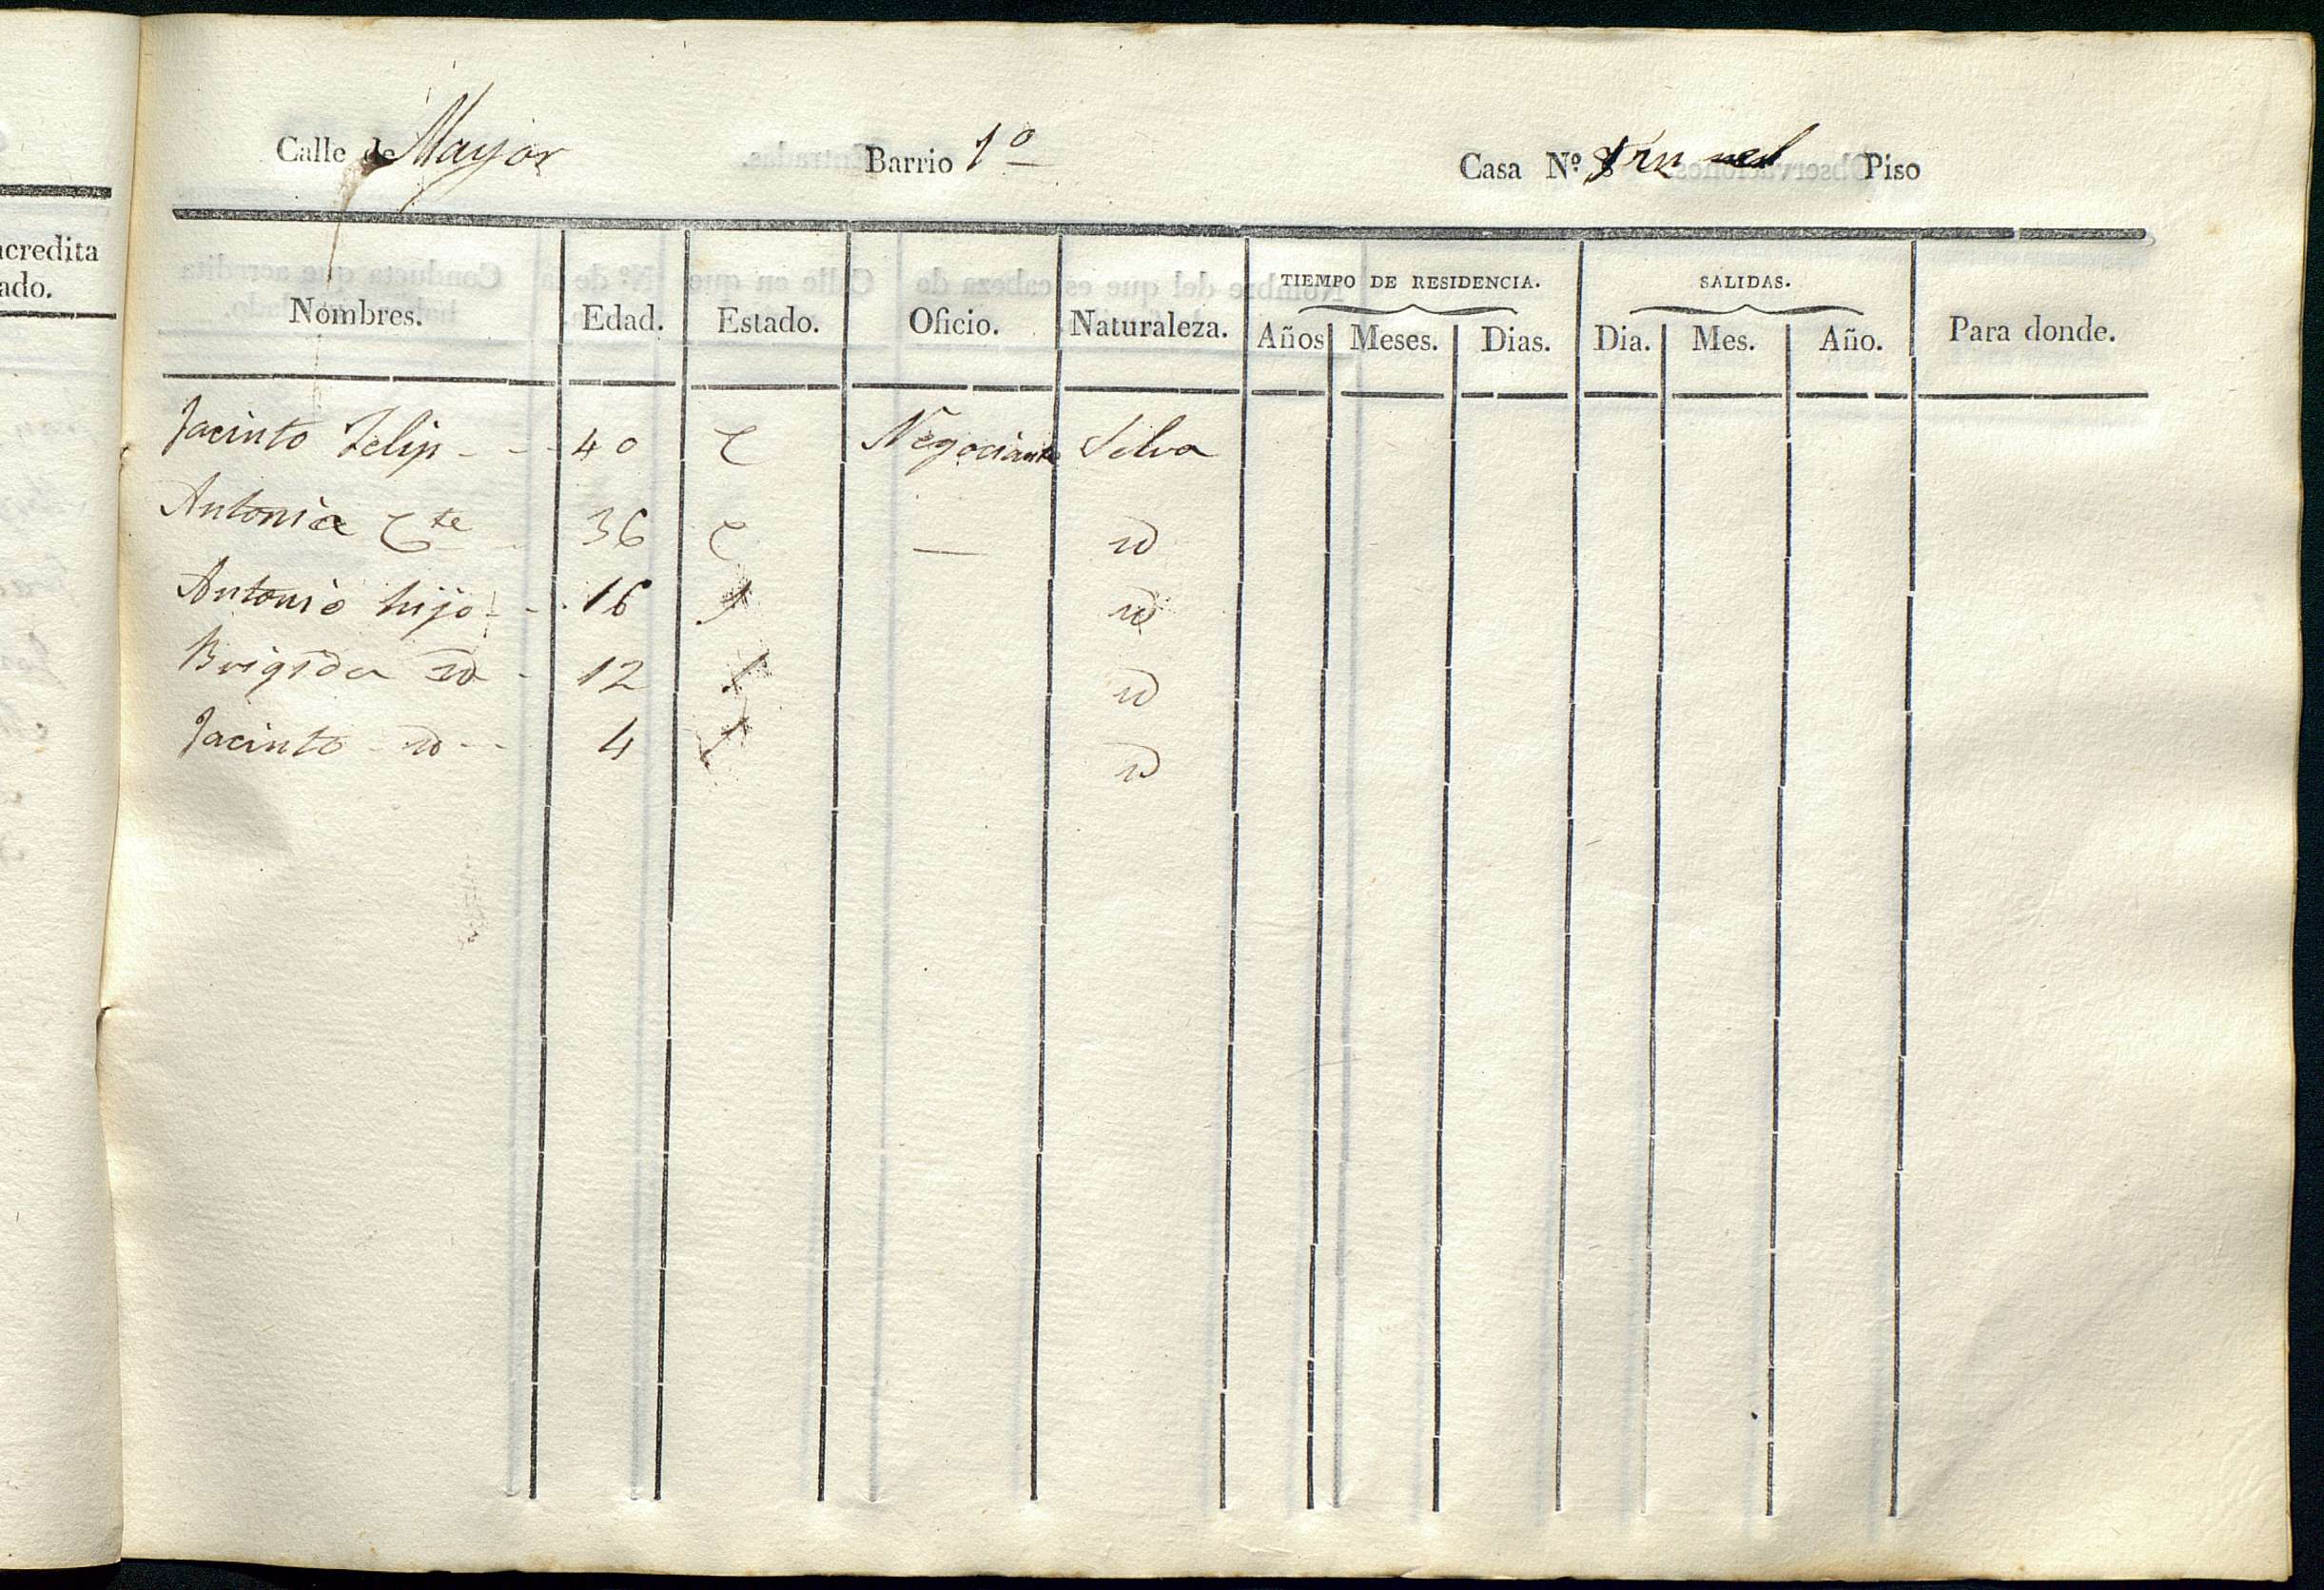 acredita
ado.
Calle de Mayor Barrio 1º Casa Nº Piso
TIEMPO DE RESIDENCIA. SALIDAS.
Nombres. Edad. Estado. Oficio. Naturaleza. Años Meses. Dias. Dia. Mes. Año. Para donde.
Jacinto Felip - - - 40 C Negociante Selva
Antonia Cte 36 C — id
Antonio hijo - - 16 S id
Brigida id - 12 S id
Jacinto - id - - 4 S id